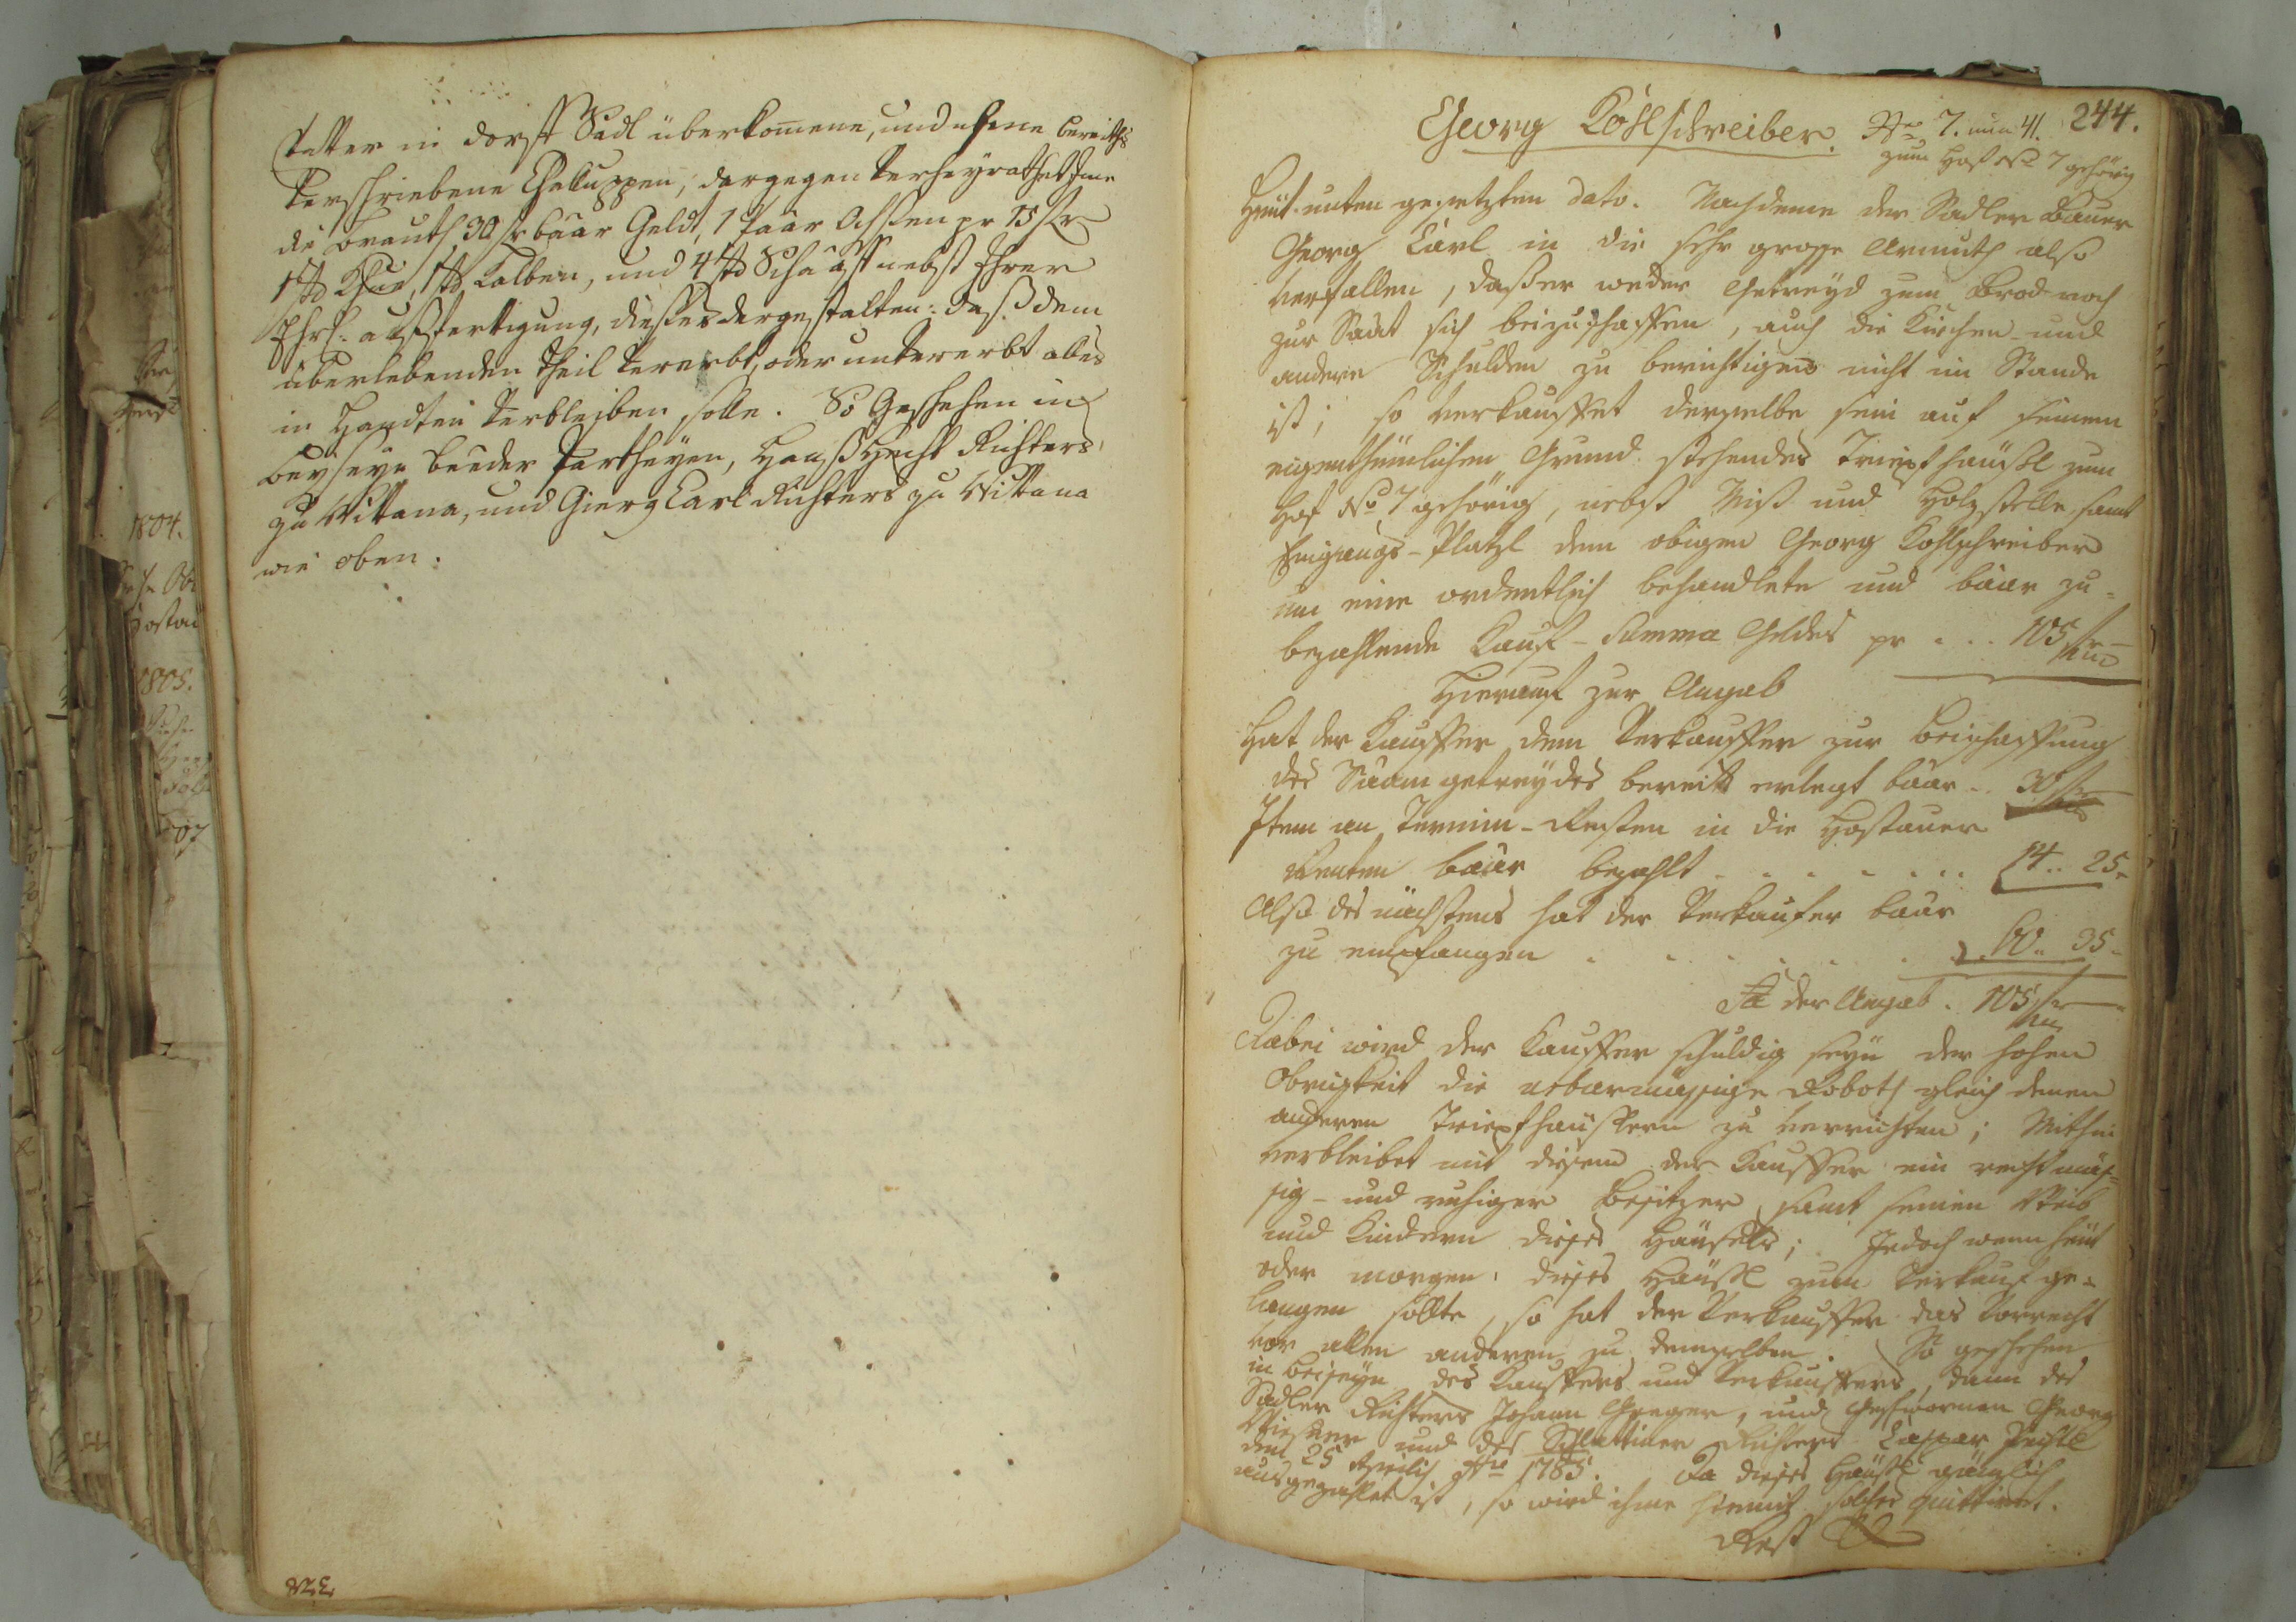 Vatter in dorff Sadl überkomene, und ohne bereiths
verschriebene Chaluppen, dargegen verheyrathet Ihme
die brauth 30 fr baar Geldt, 1 Paar Ochsen pr 15 fr
1 st Khue, 1 st Kalben, und 4 st Schaaff nebst Ihrer
Ehrl: außfertigung, dießes dergestalten: daß dem
überlebenden theil vererbt, oder unvererbt alles
in Handten verbleiben solle. So Geschehen in
beyseyn beeder Partheyen, Hannß Richters
zu Wittana, und Gierg Carl Richters zu Wittana
wie oben.
1804.
1805.
244.
Georg Kohlschreiber. Nro 7. nun 41.
zum Hof No 7 gehörig
Heut unten gesetzten dato. Nachdeme der Sadler Bauer
Georg Carl in die sehr grosse Armuth also
verfallen, daß er weder Getreyd zum Brod noch
zur Saat sich beizuschaffen, auch die Kirchen- und
andere Schulden zu berichtigen nicht im Stande
ist; so verkauffet derselbe sein auf seinem
eigenthümlichen Grund stehendes Tripfhäußl zum
Hof No 7 gehörig, nebst Mist und Holzstelle, samt
Eingangs-Platzl dem obigen Georg Kohlschreiber
um eine ordentlich behandlete und baar zu-
bezahlende Kauf-Summa Geldes pr . . . 105 fr
Hierauf zur Angab
Hat der Kauffer dem Verkauffer zur Beischaffung
des Saamgetreydes bereits erlegt baar . . 30 fr
Item an Termin-Resten in die Hostauer
Renten baar bezahlt . . . . . . 14 .. 25
Also des nächstens hat der Verkaufer baar
zu empfangen . . . . . 60 .. 35
Sa der Angab . 105 fr
Dabei wird der Kauffer schuldig seyn der hohen
Obrigkeit die urbarmässige Roboth gleich denen
anderen Tripfhäuslern zu verrichten; Mithin
verbleibet mit diesem der Kauffer ein rechtmäs-
sig- und ruhiger Besitzer samt seinem Weib
und Kindern dieses Häusels; Jedoch wenn heut
oder morgen dieses Häußl zum Verkauf ge-
langen sollte, so hat der Verkauffer das Vorrecht
vor allen anderen zu demselben. So geschehen
in beiseyn des Kauffers und Verkauffers, dann des
Sadler Richters Johann Greger, und Geschwornen Georg
und des Schlattiner Richters Caspar
den 25 Aprilis 1785. Da dieses Häußl gänzlich
ausgezahlet ist, so wird ihme hiemit solches quittiret.
Rest